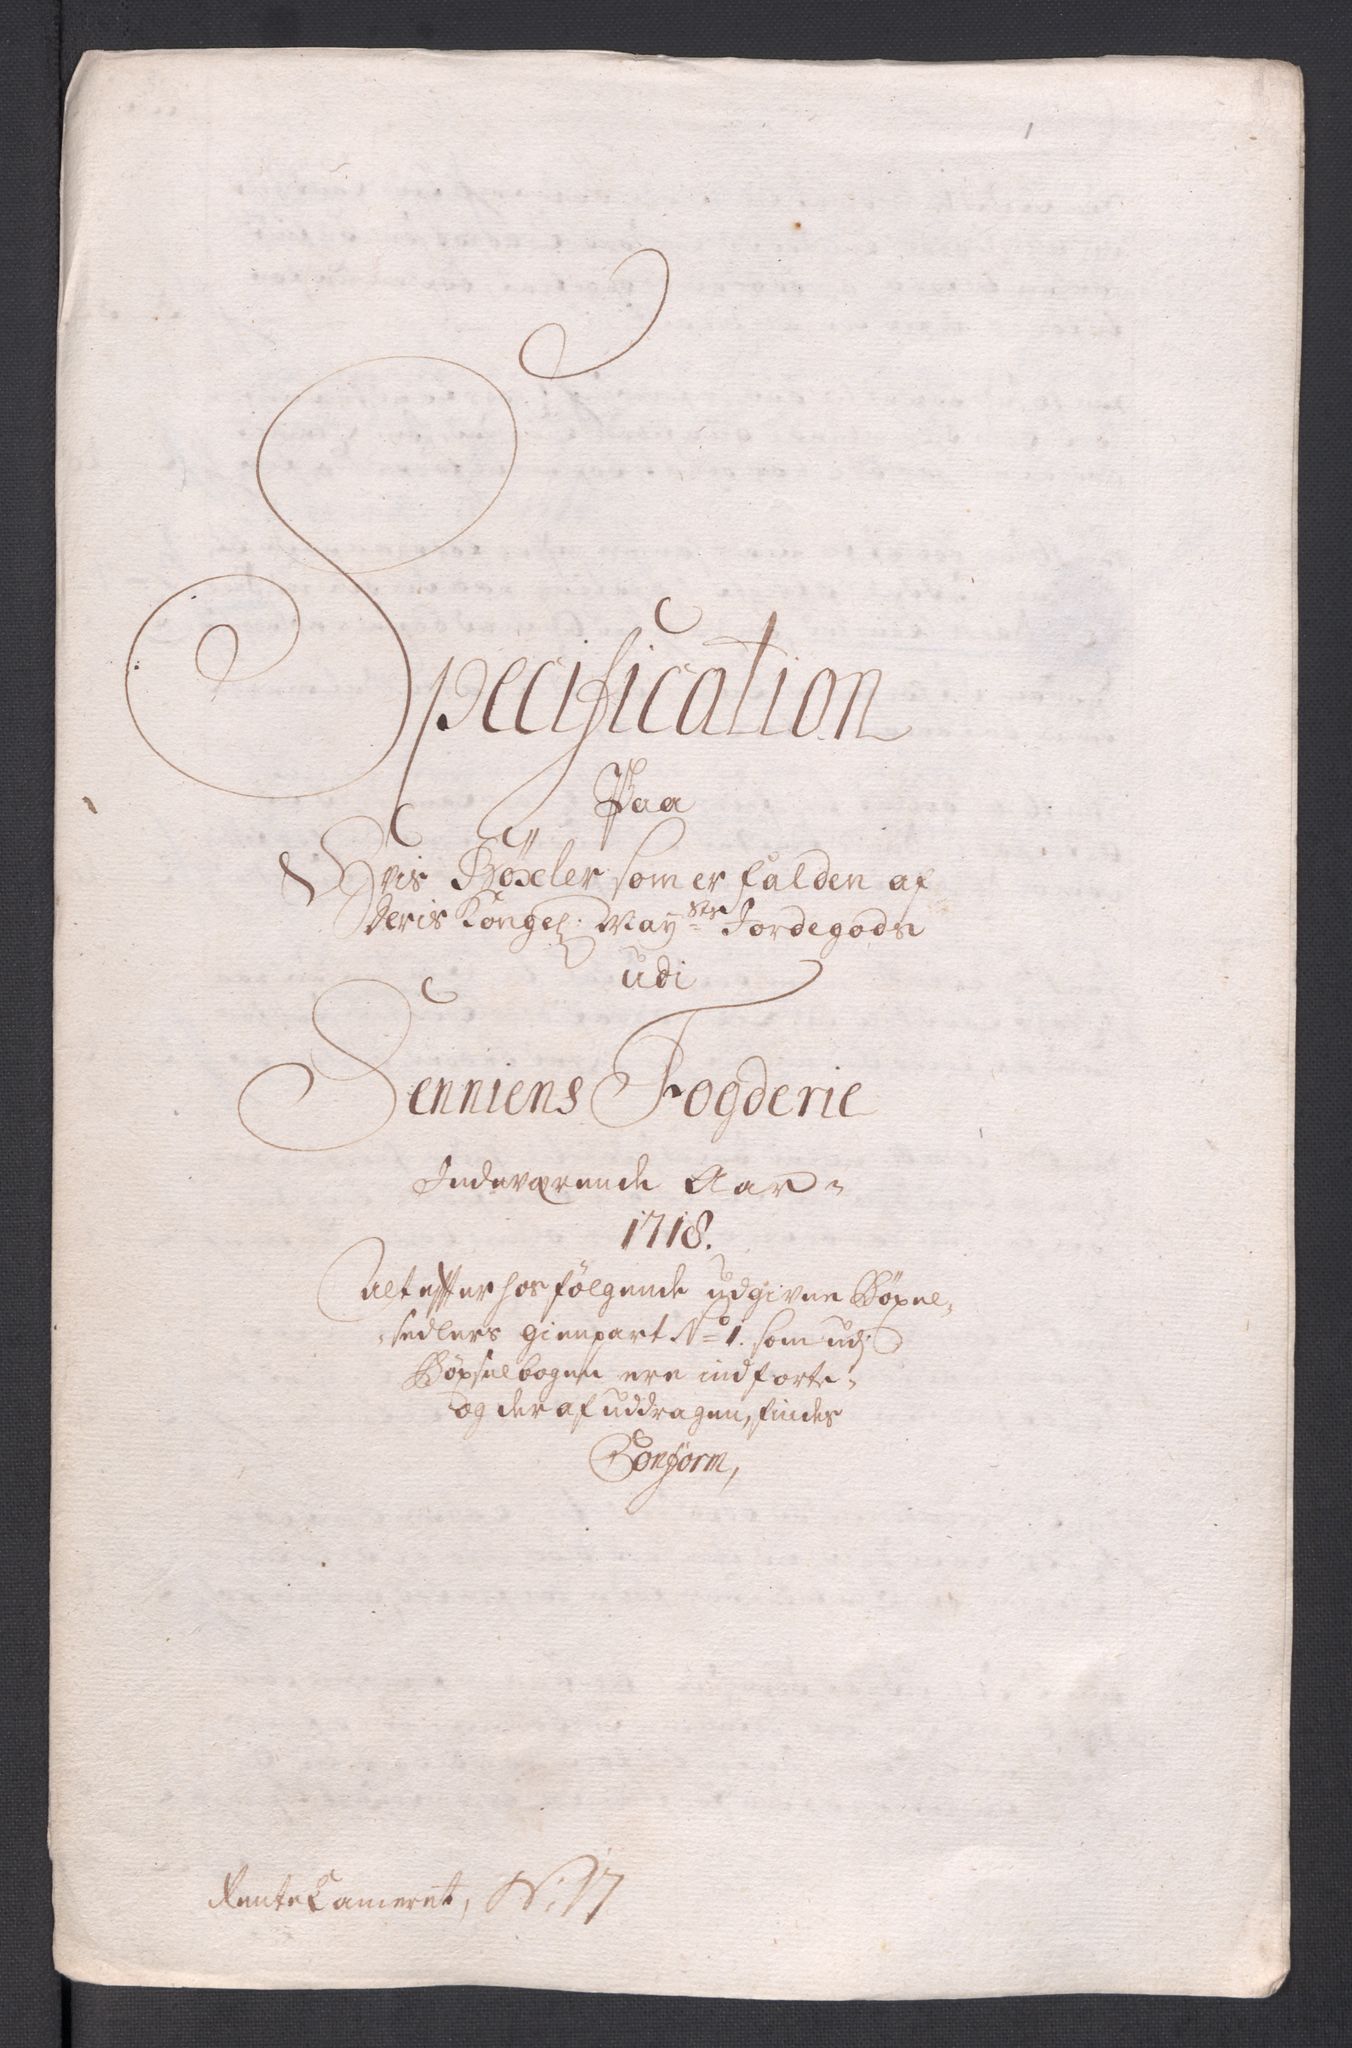 Specification
Paa
Hvis Böxler som er falden af
Deris Kongel: May:sts Jordegods
udi
Senniens Fogderie
Indeværende Aar
1718.
alt efter hosfølgende udgivne Böxel-
sedlers gienpart No 1. som udj
Böxselbogen ere indförte
og der af uddragen, findes
Conform,
RenteCameret, N: 17